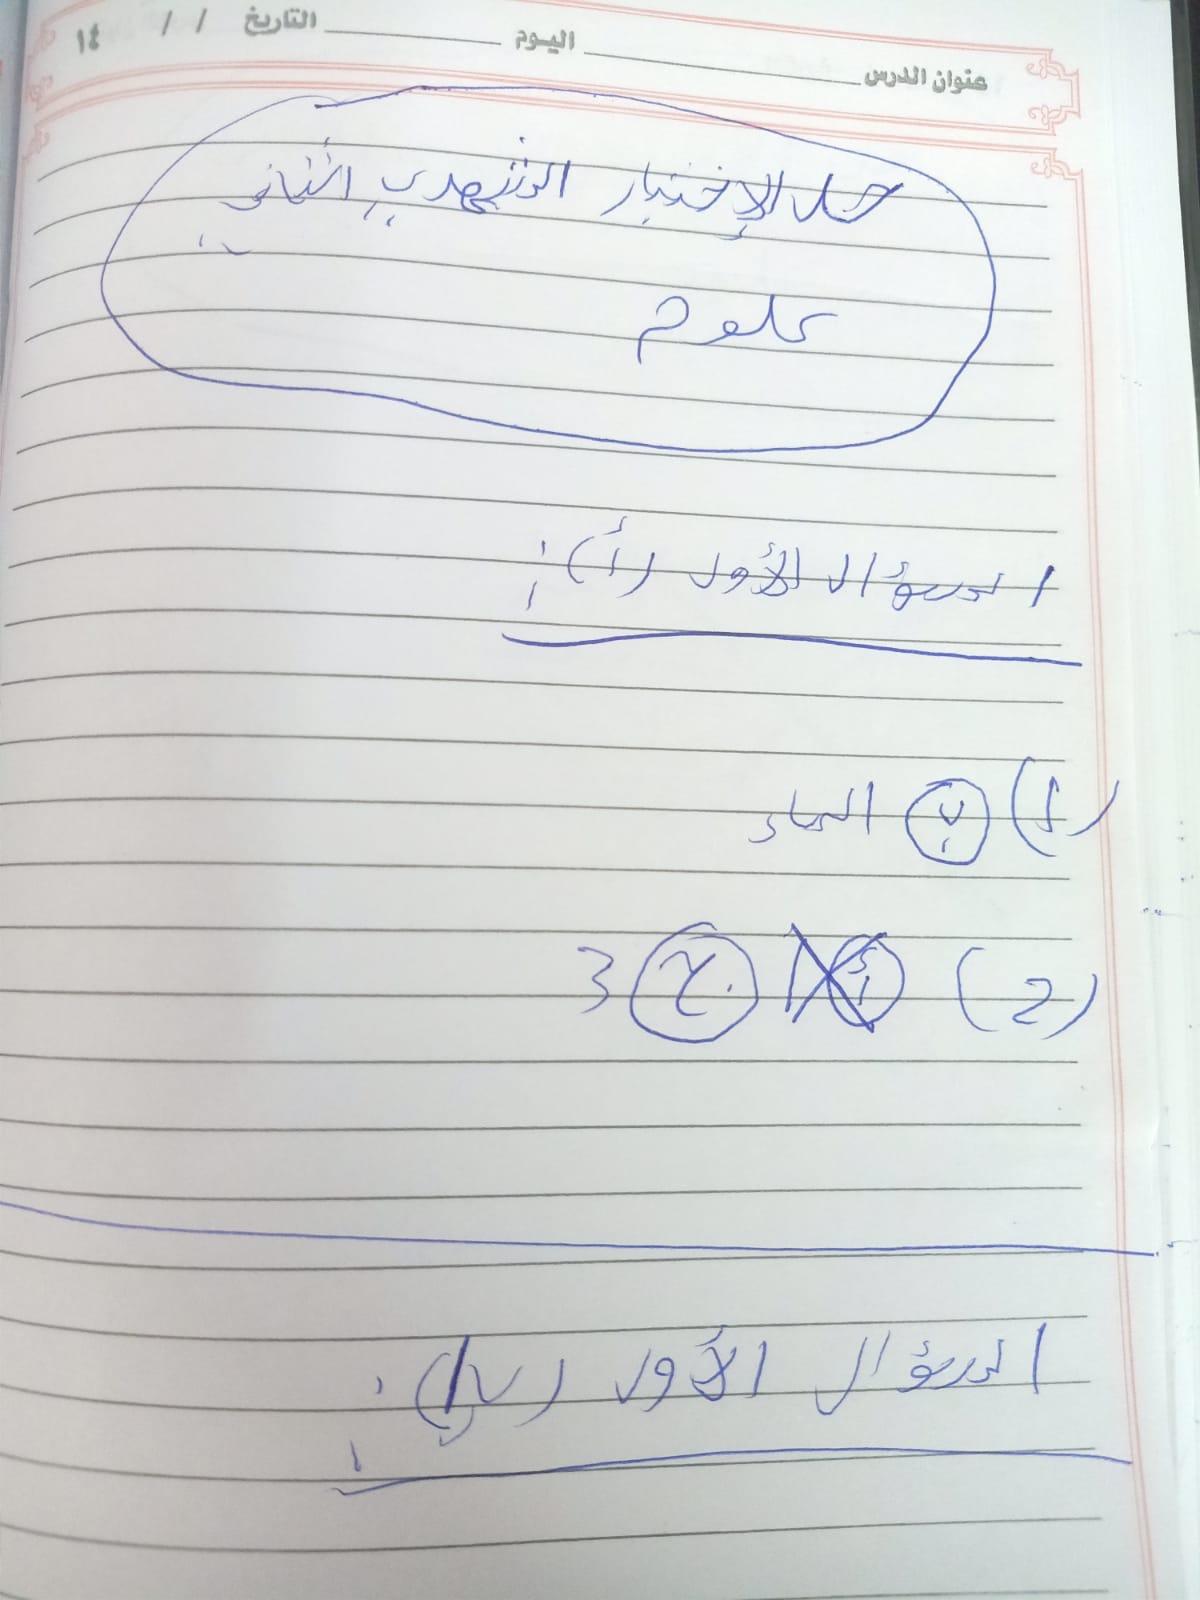 عنوان الدرس اليوم التاريخ / / ١٤
حل الإختبار الشهري الثاني
علوم
السؤال الأول (أ):
(1) ب الماء
(2) ج 3
السؤال الأول (ب):